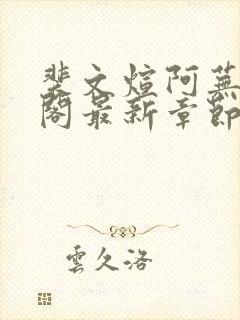 裴文煊阿蕪
閣最新章節
雲久洛